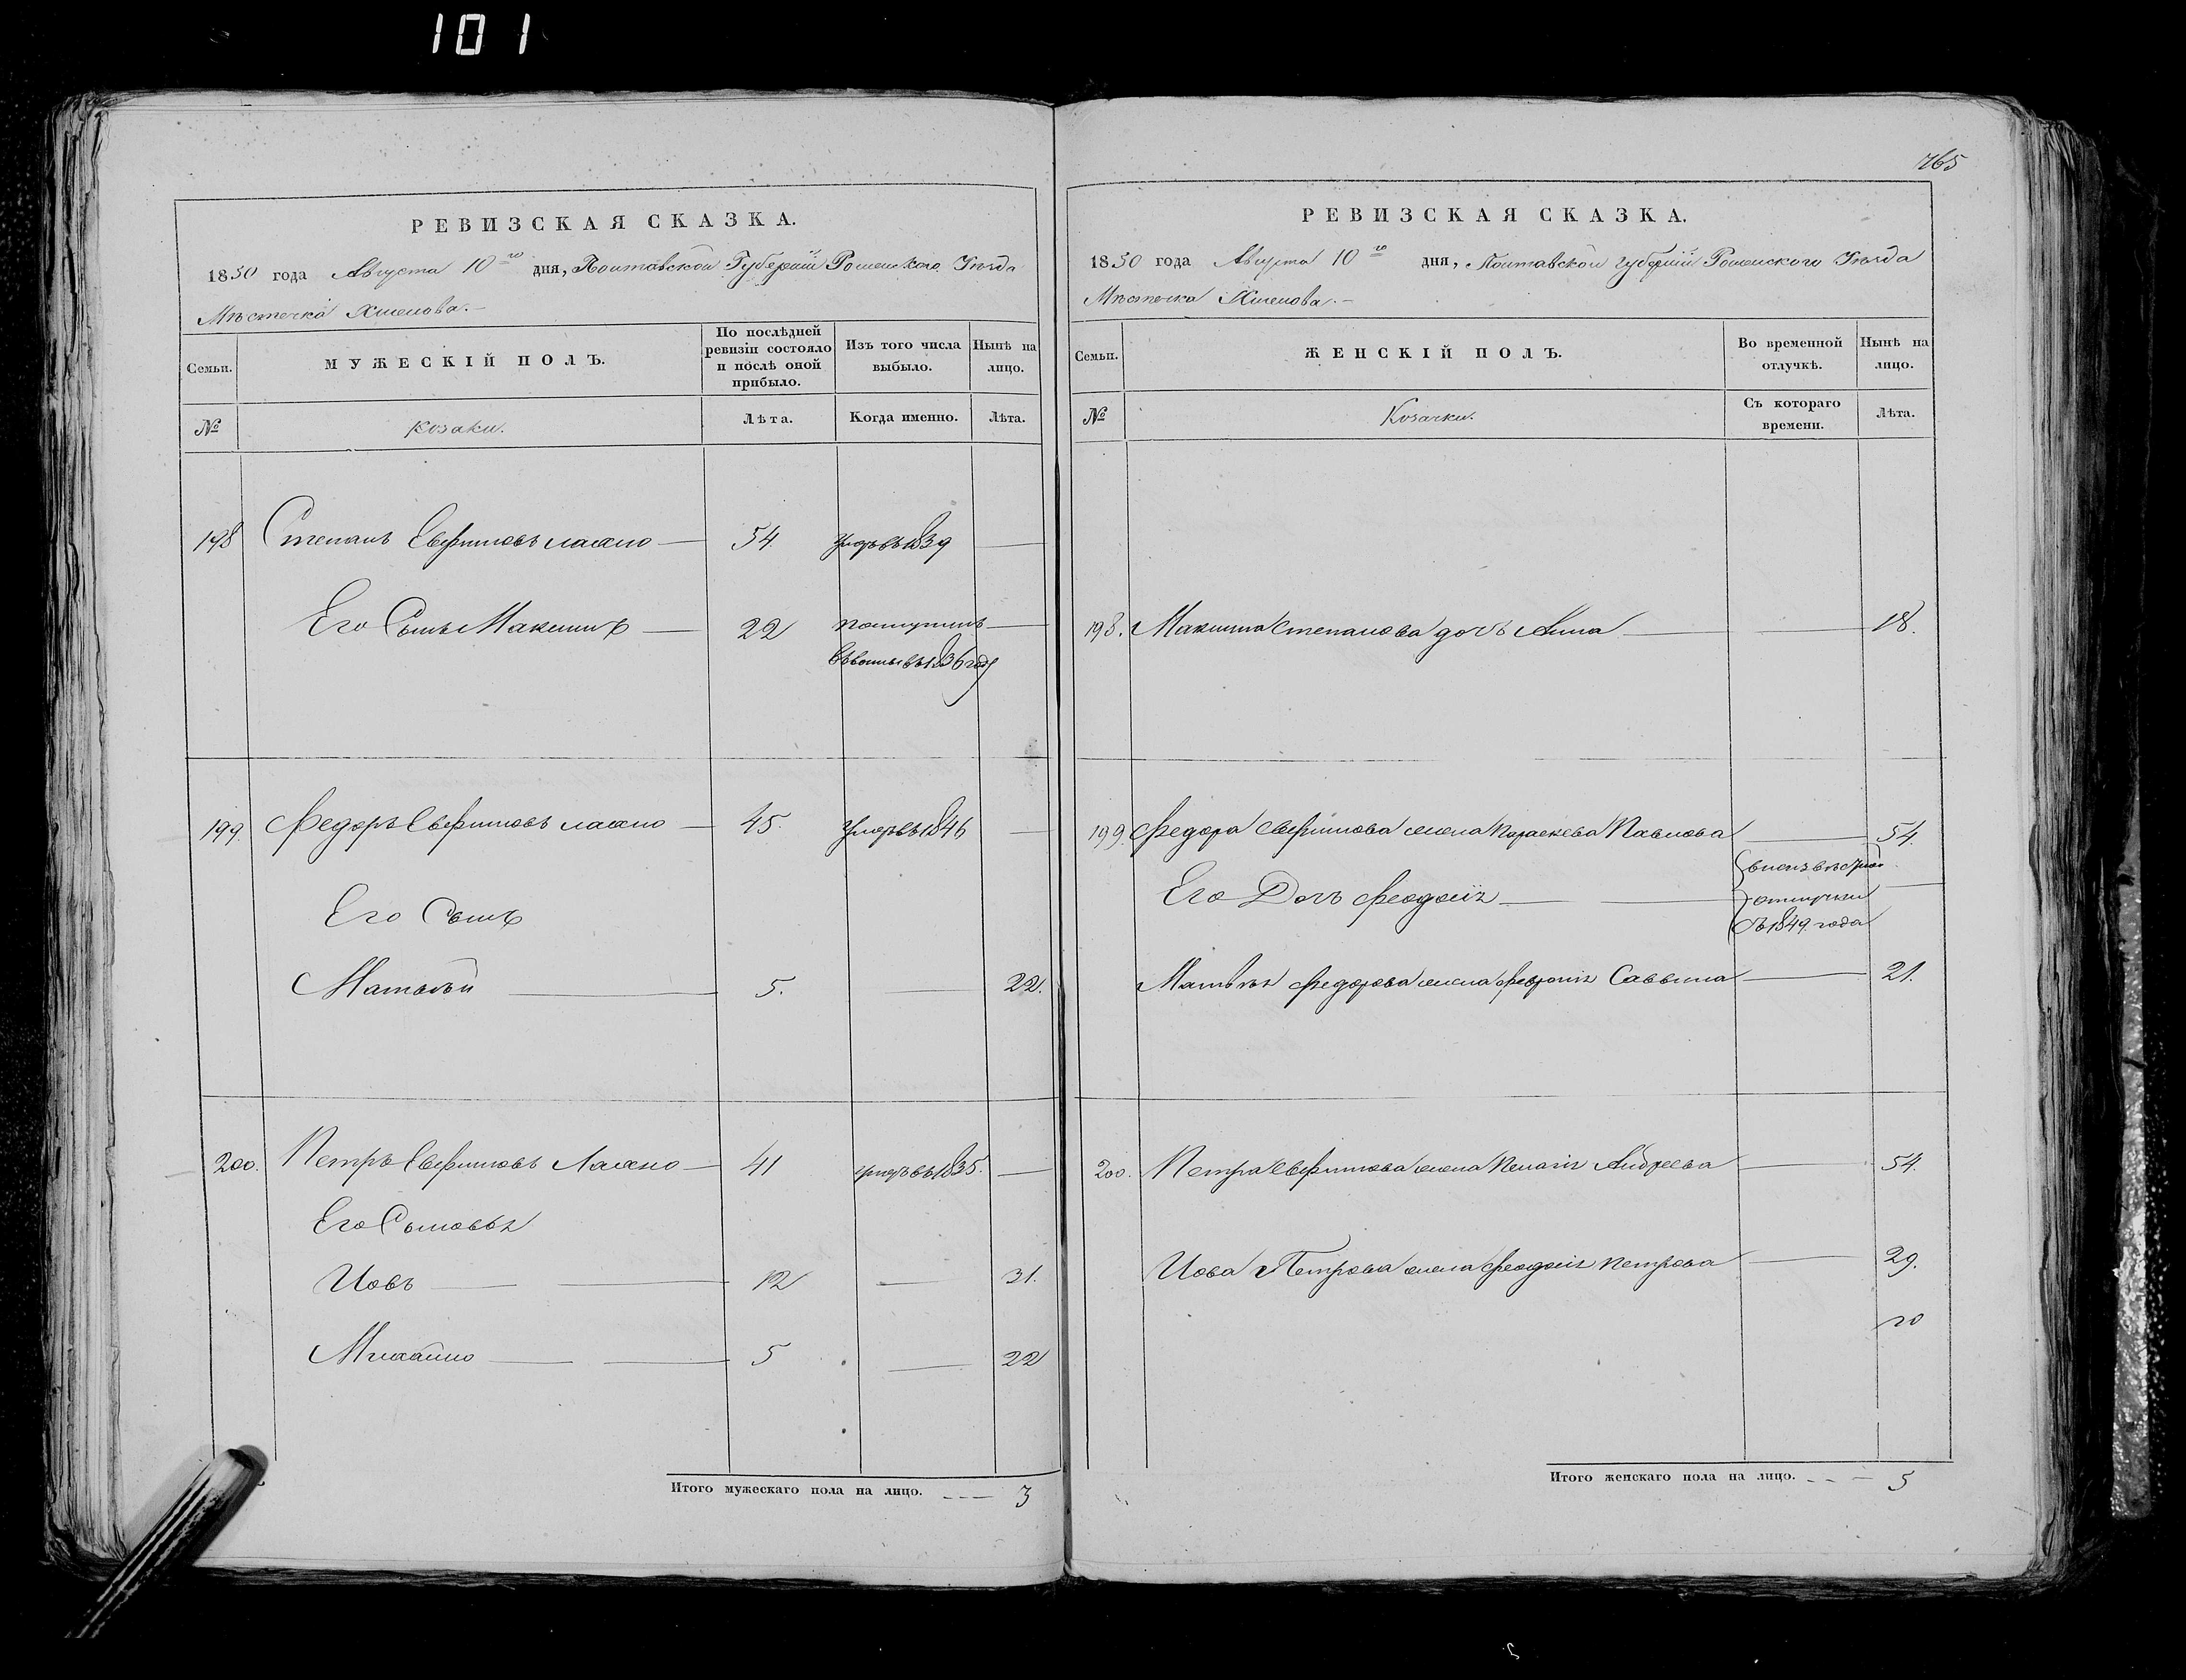 101
РЕВИЗСКАЯ СКАЗКА.
1850 года Августа 10го дня, Полтавской Губерніи Роменского Уѣзда
Мѣстечка Хмелова.
Семьи.
МУЖЕСКІЙ ПОЛЪ.
По послѣдней ревизіи состояло и послѣ оной прибыло.
Изъ того числа выбыло.
Нынѣ на лицо.
№
Козаки.
Лѣта.
Когда именно.
Лѣта.
198 Степанъ Евфимовъ 54. умръ въ 1839
Его Сынъ Максимъ 22
въ 1836 году
199. Федоръ Евфимовъ 45. умеръ въ 1846
Его Сынъ
Матвѣй 5. 22.
200. Петръ Евфимовъ 41 умеръ въ 1835.
Его Сыновья
Иовъ 12 31.
Михайло 5 22
Итого мужескаго пола на лицо. 3
765
РЕВИЗСКАЯ СКАЗКА.
1850 года Августа 10го дня, Полтавской Губерніи Роменского Уѣзда
Мѣстечка Хмелова.
Семьи.
ЖЕНСКІЙ ПОЛЪ.
Во временной отлучкѣ.
Нынѣ на лицо.
№
Козачки.
Съ котораго времени.
Лѣта.
198. Максима Степанова дочь Анна 18.
199. Федора Евфимова жена Параскева Павлова 54.
Его Дочь Феодосія
отлучки
съ 1849 года
Матвѣя Федорова жена Февронія Саввина 21.
200. Петра Евфимова жена Пелагія Андреева 54.
Иова Петрова жена Феодосія Петрова 29.
Итого женскаго пола на лицо. 5